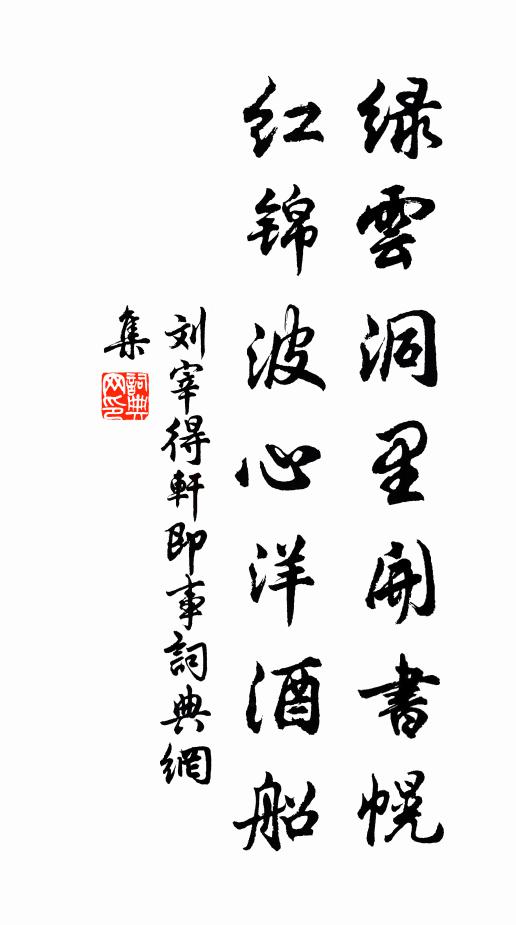 绿雲洞里開書幌
红锦波心洋酒船
刘宰得軒即事詞典網
集
詞典网印